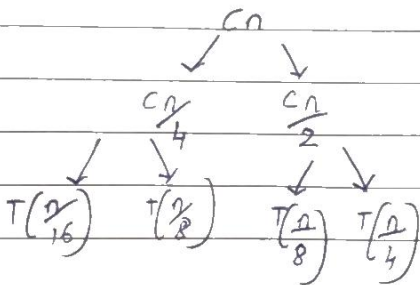 Cn
Cn/4 Cn/2
T(n/16) T(n/8) T(n/8) T(n/4)